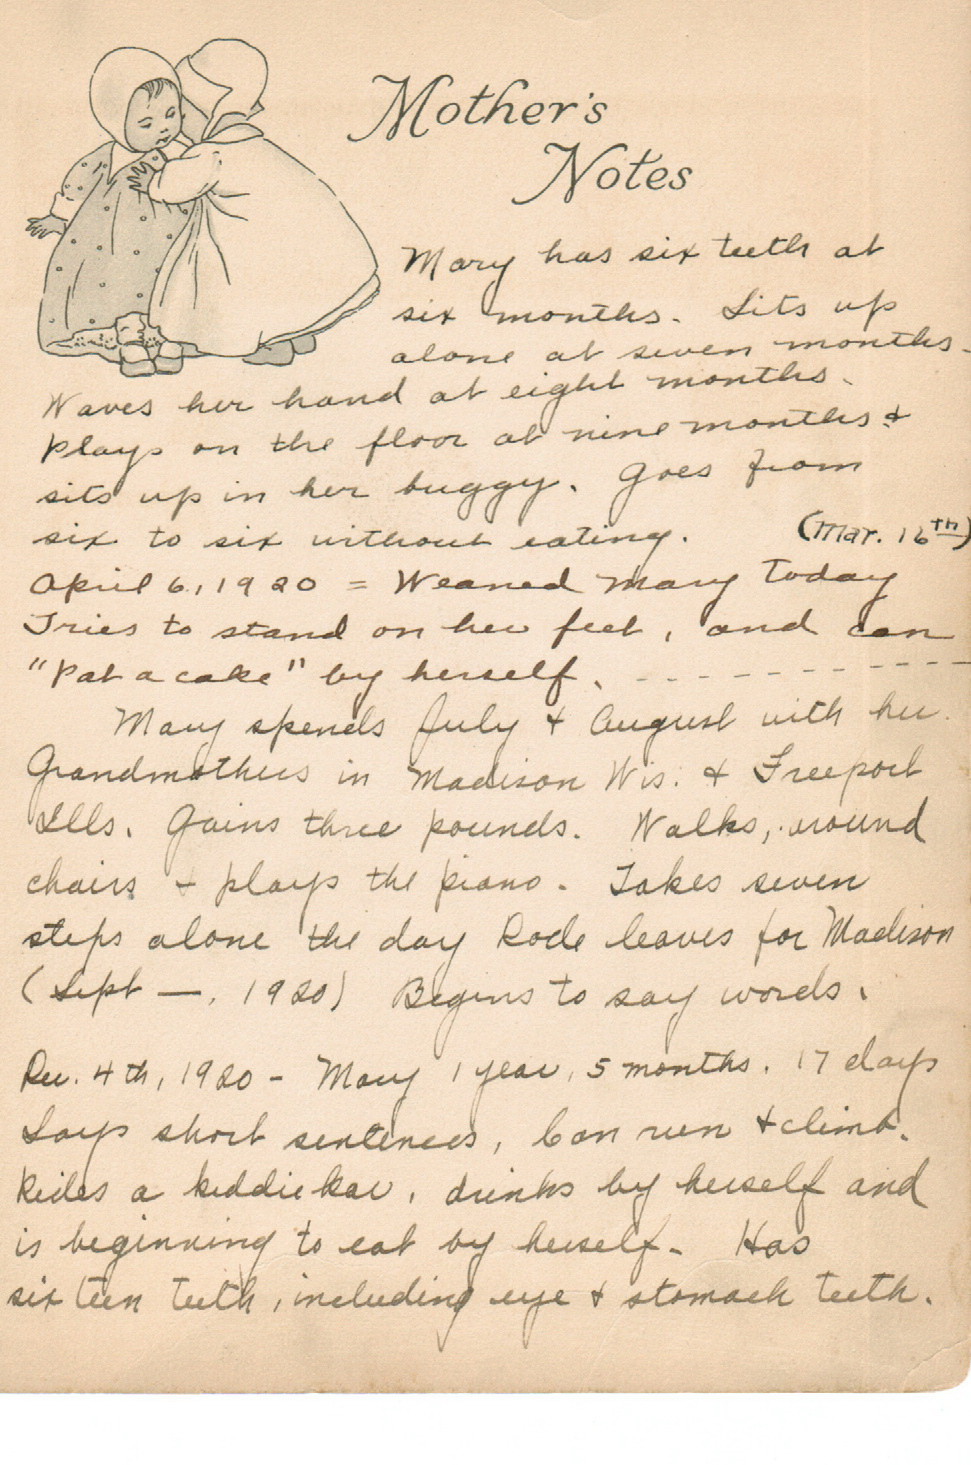 Mother's
Notes
Mary has six teeth at
six months. Sits up
alone at seven months-
Waves her hand at eight months.
Plays on the floor at nine months &
sits up in her buggy. Goes from
six to six without eating. (Mar. 16th)
April 6, 1920 = Weaned Mary today
Tries to stand on her feet, and can
"Pat a cake" by herself. - - - - - - - - - - -
Mary spends July & August with her
Grandmothers in Madison Wis. & Freeport
Ills. Gains three pounds. Walks, around
chairs & plays the piano. Takes seven
steps alone the day leaves for Madison
(Sept —, 1920) Begins to say words.
Dec. 4th, 1920 - Mary 1 year, 5 months, 17 days
Says short sentences, Can run & climb.
Rides a kiddie kar, drinks by herself and
is beginning to eat by herself. Has
sixteen teeth, including eye & stomach teeth.